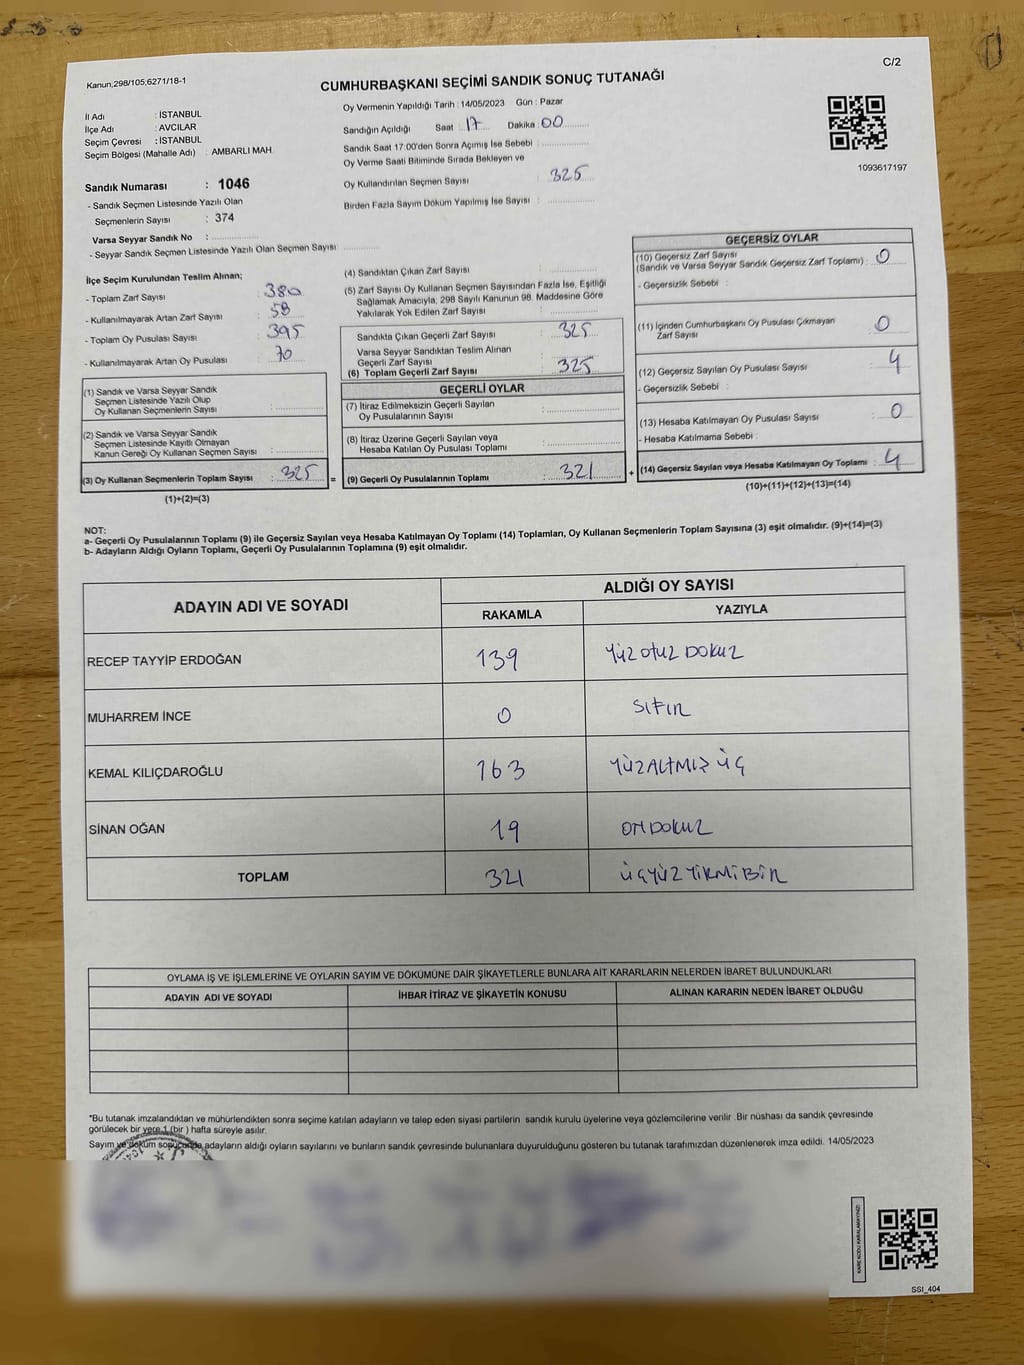 Kanun;298/105,6271/18-1
C/2
CUMHURBAŞKANI SEÇİMİ SANDIK SONUÇ TUTANAĞI
İl Adı : İSTANBUL
İlçe Adı : AVCILAR
Seçim Çevresi : İSTANBUL
Seçim Bölgesi (Mahalle Adı) : AMBARLI MAH.
Sandık Numarası : 1046
- Sandık Seçmen Listesinde Yazılı Olan
Seçmenlerin Sayısı : 374
Varsa Seyyar Sandık No :
- Seyyar Sandık Seçmen Listesinde Yazılı Olan Seçmen Sayısı
Oy Vermenin Yapıldığı Tarih : 14/05/2023 Gün : Pazar
Sandığın Açıldığı Saat : 17 Dakika : 00
Sandık Saat 17:00'den Sonra Açımış İse Sebebi :
Oy Verme Saati Bitiminde Sırada Bekleyen ve
Oy Kullandırılan Seçmen Sayısı : 325
Birden Fazla Sayım Döküm Yapılmış İse Sayısı :
1093617197
İlçe Seçim Kurulundan Teslim Alınan;
- Toplam Zarf Sayısı : 380
- Kullanılmayarak Artan Zarf Sayısı : 58
- Toplam Oy Pusulası Sayısı : 395
- Kullanılmayarak Artan Oy Pusulası : 70
(1) Sandık ve Varsa Seyyar Sandık
Seçmen Listesinde Yazılı Olup
Oy Kullanan Seçmenlerin Sayısı :
(2) Sandık ve Varsa Seyyar Sandık
Seçmen Listesinde Kayıtlı Olmayan
Kanun Gereği Oy Kullanan Seçmen Sayısı :
(3) Oy Kullanan Seçmenlerin Toplam Sayısı : 325 =
(1)+(2)=(3)
(4) Sandıktan Çıkan Zarf Sayısı :
(5) Zarf Sayısı Oy Kullanan Seçmen Sayısından Fazla İse, Eşitliği
Sağlamak Amacıyla, 298 Sayılı Kanunun 98. Maddesine Göre
Yakılarak Yok Edilen Zarf Sayısı :
Sandıkta Çıkan Geçerli Zarf Sayısı : 325
Varsa Seyyar Sandıktan Teslim Alınan
Geçerli Zarf Sayısı :
(6) Toplam Geçerli Zarf Sayısı : 325
GEÇERLİ OYLAR
(7) İtiraz Edilmeksizin Geçerli Sayılan
Oy Pusulalarının Sayısı :
(8) İtiraz Üzerine Geçerli Sayılan veya
Hesaba Katılan Oy Pusulası Toplamı :
(9) Geçerli Oy Pusulalarının Toplamı : 321 +
GEÇERSİZ OYLAR
(10) Geçersiz Zarf Sayısı
(Sandık ve Varsa Seyyar Sandık Geçersiz Zarf Toplamı) : 0
- Geçersizlik Sebebi :
(11) İçinden Cumhurbaşkanı Oy Pusulası Çıkmayan
Zarf Sayısı : 0
(12) Geçersiz Sayılan Oy Pusulası Sayısı : 4
- Geçersizlik Sebebi :
(13) Hesaba Katılmayan Oy Pusulası Sayısı : 0
- Hesaba Katılmama Sebebi :
(14) Geçersiz Sayılan veya Hesaba Katılmayan Oy Toplamı : 4
(10)+(11)+(12)+(13)=(14)
NOT:
a- Geçerli Oy Pusulalarının Toplamı (9) ile Geçersiz Sayılan veya Hesaba Katılmayan Oy Toplamı (14) Toplamları, Oy Kullanan Seçmenlerin Toplam Sayısına (3) eşit olmalıdır. (9)+(14)=(3)
b- Adayların Aldığı Oyların Toplamı, Geçerli Oy Pusulalarının Toplamına (9) eşit olmalıdır.
ADAYIN ADI VE SOYADI
ALDIĞI OY SAYISI
RAKAMLA YAZIYLA
RECEP TAYYİP ERDOĞAN 139 YÜZ OTUZ DOKUZ
MUHARREM İNCE 0 SIFIR
KEMAL KILIÇDAROĞLU 163 YÜZALTMIŞ ÜÇ
SİNAN OĞAN 19 ON DOKUZ
TOPLAM 321 ÜÇYÜZ YİRMİ BİR
OYLAMA İŞ VE İŞLEMLERİNE VE OYLARIN SAYIM VE DÖKÜMÜNE DAİR ŞİKAYETLERLE BUNLARA AİT KARARLARIN NELERDEN İBARET BULUNDUKLARI
ADAYIN ADI VE SOYADI İHBAR İTİRAZ VE ŞİKAYETİN KONUSU ALINAN KARARIN NEDEN İBARET OLDUĞU
*Bu tutanak imzalandıktan ve mühürlendikten sonra seçime katılan adayların ve talep eden siyasi partilerin sandık kurulu üyelerine veya gözlemcilerine verilir .Bir nüshası da sandık çevresinde
görülecek bir yere 1 (bir ) hafta süreyle asılır.
Sayım ve döküm sonucunda adayların aldığı oyların sayılarını ve bunların sandık çevresinde bulunanlara duyurulduğunu gösteren bu tutanak tarafımızdan düzenlenerek imza edildi. 14/05/2023
KARE KODU KARALAMAYINIZ!
SSI_404